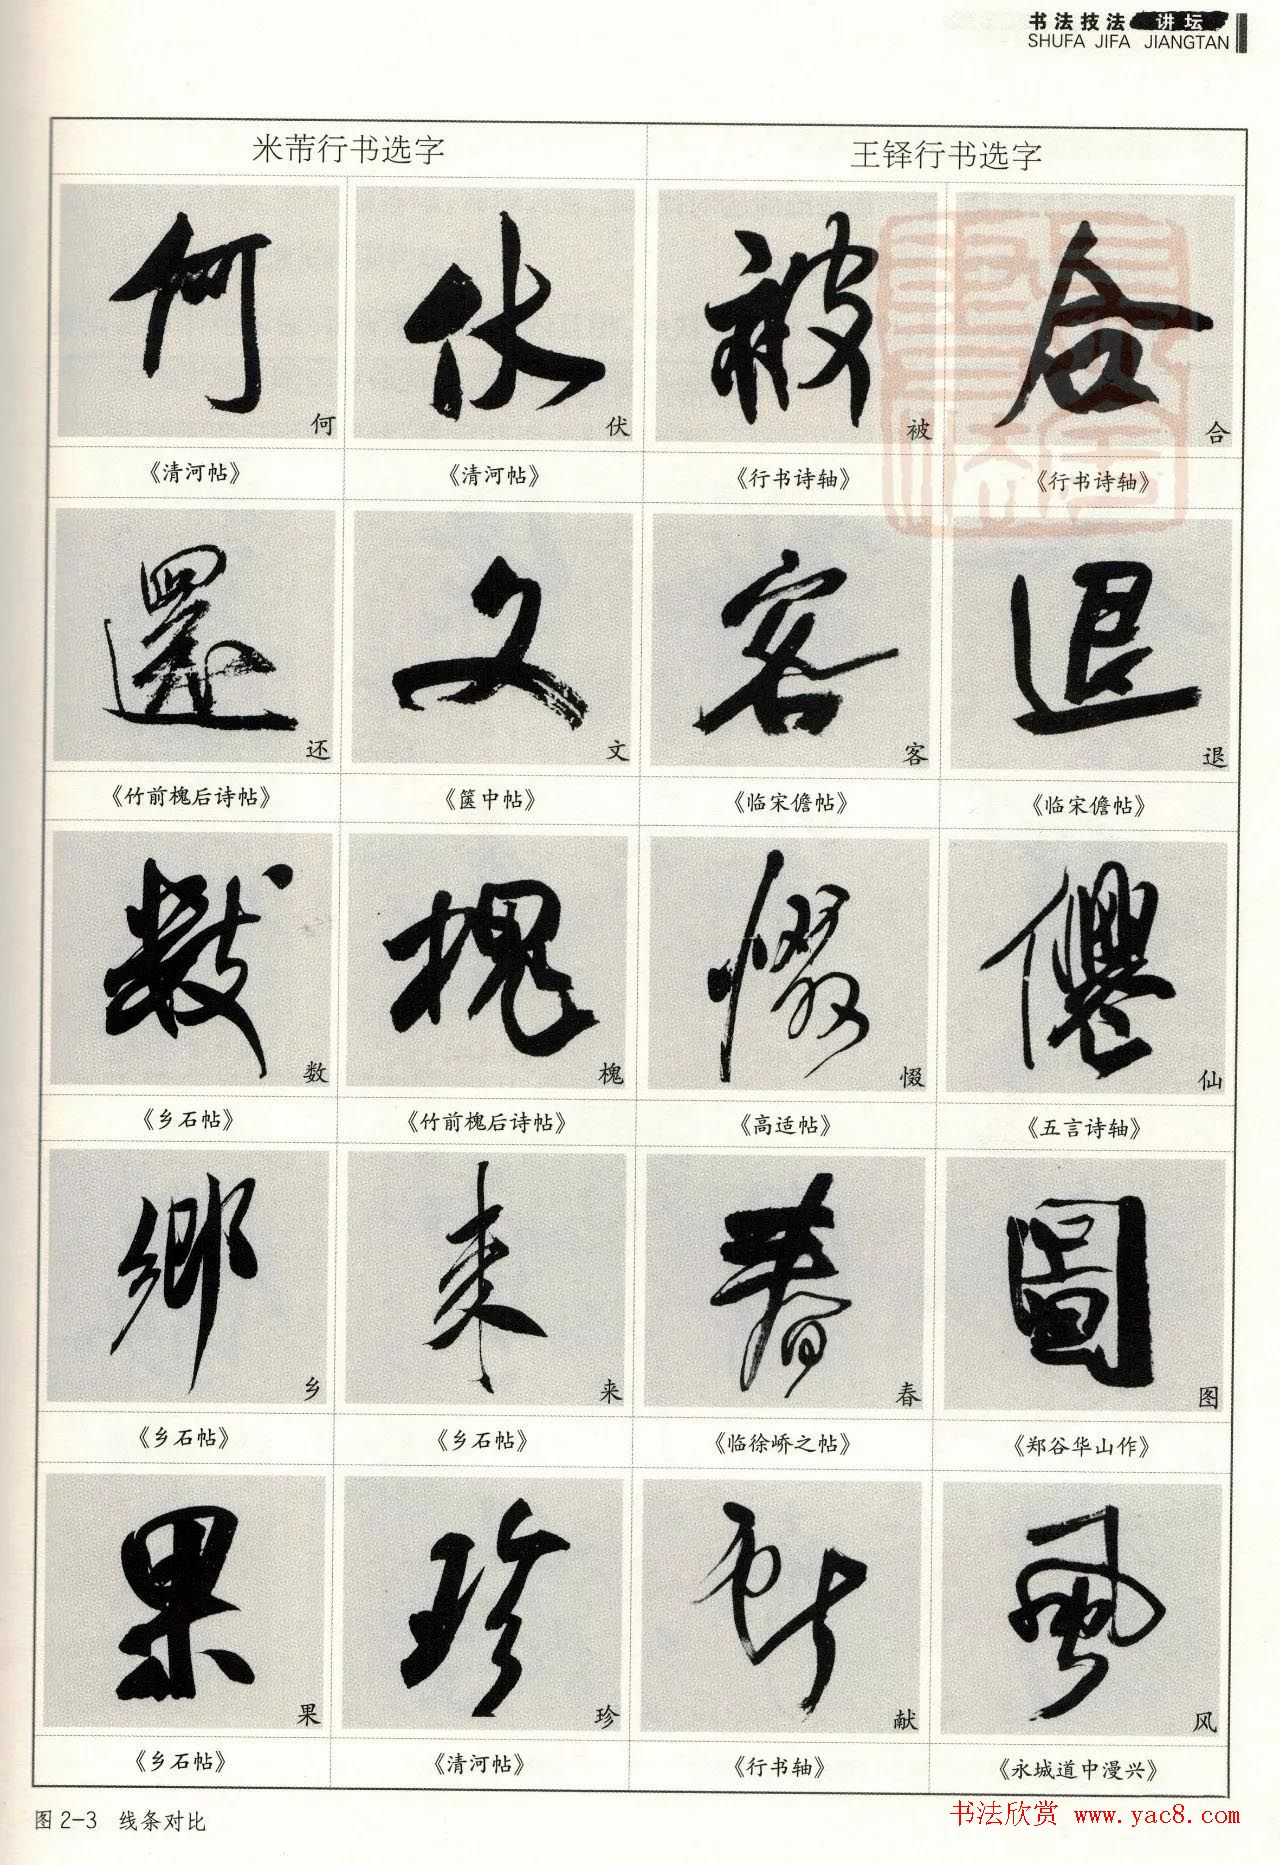 书法技法 讲坛
SHUFA JIFA JIANGTAN
米芾行书选字 王铎行书选字
何 伏 被 合
何 伏 被 合
《清河帖》 《清河帖》 《行书诗轴》 《行书诗轴》
還 文 客 退
还 文 客 退
《竹前槐后诗帖》 《箧中帖》 《临宋儋帖》 《临宋儋帖》
數 槐 惙 僊
数 槐 惙 仙
《乡石帖》 《竹前槐后诗帖》 《高适帖》 《五言诗轴》
鄉 来 春 圖
乡 来 春 图
《乡石帖》 《乡石帖》 《临徐峤之帖》 《郑谷华山作》
果 珍 献 風
果 珍 献 风
《乡石帖》 《清河帖》 《行书轴》 《永城道中漫兴》
图 2-3 线条对比
书法欣赏 www.yac8.com